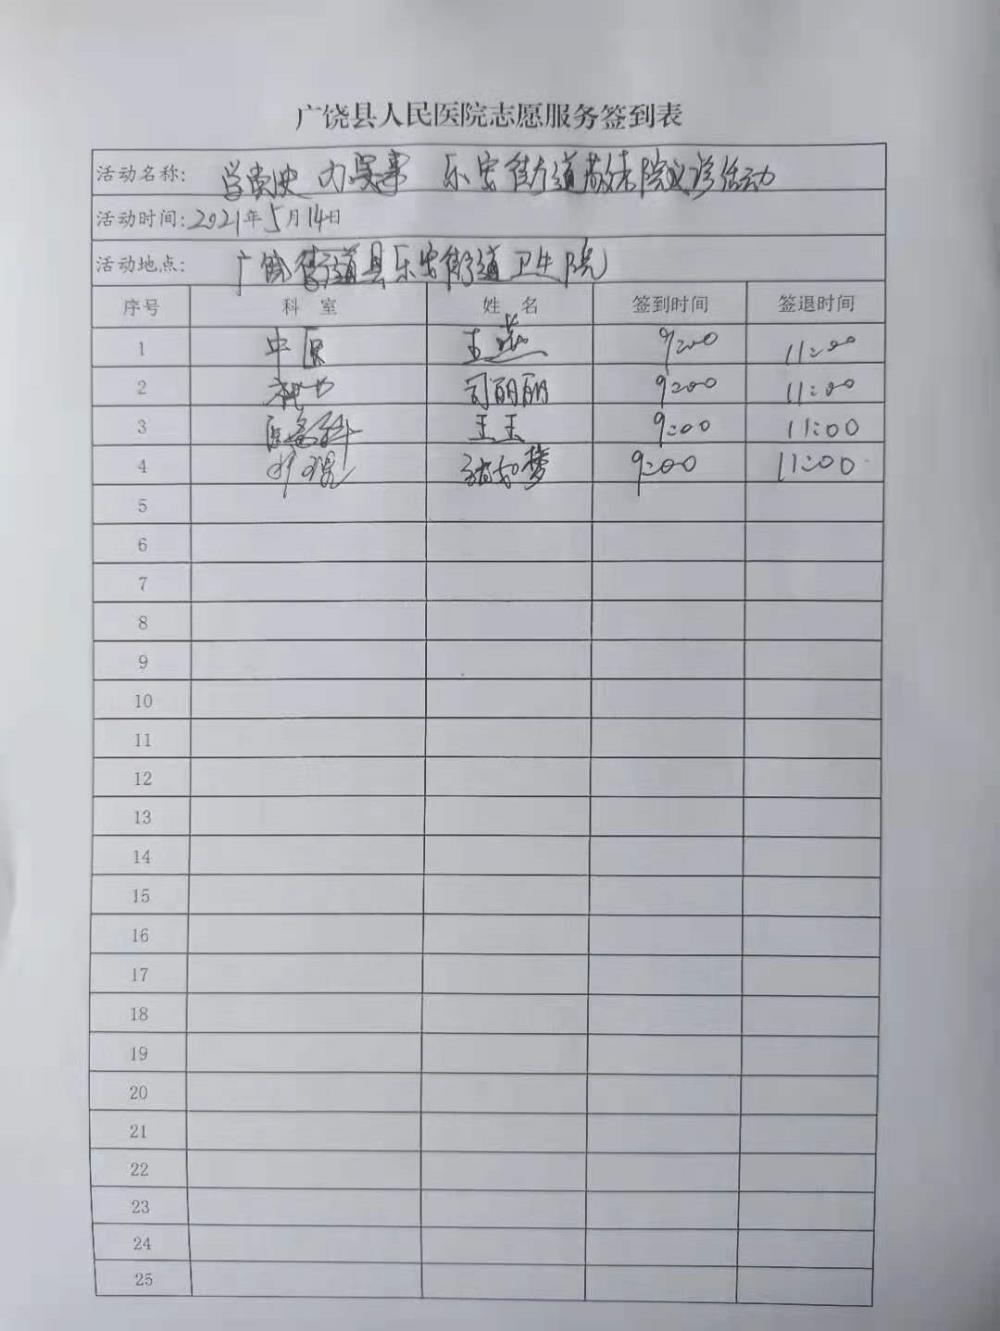 广饶县人民医院志愿服务签到表
活动名称: 学党史 办实事 乐安街道敬老院义诊活动
活动时间: 2021年5月14日
活动地点: 广饶街道县乐安街道卫生院
序号 科室 姓名 签到时间 签退时间
1 中医 王燕 9:00 11:00
2 司丽丽 9:00 11:00
3 医务科 王玉 9:00 11:00
4 护理 梦 9:00 11:00
5
6
7
8
9
10
11
12
13
14
15
16
17
18
19
20
21
22
23
24
25